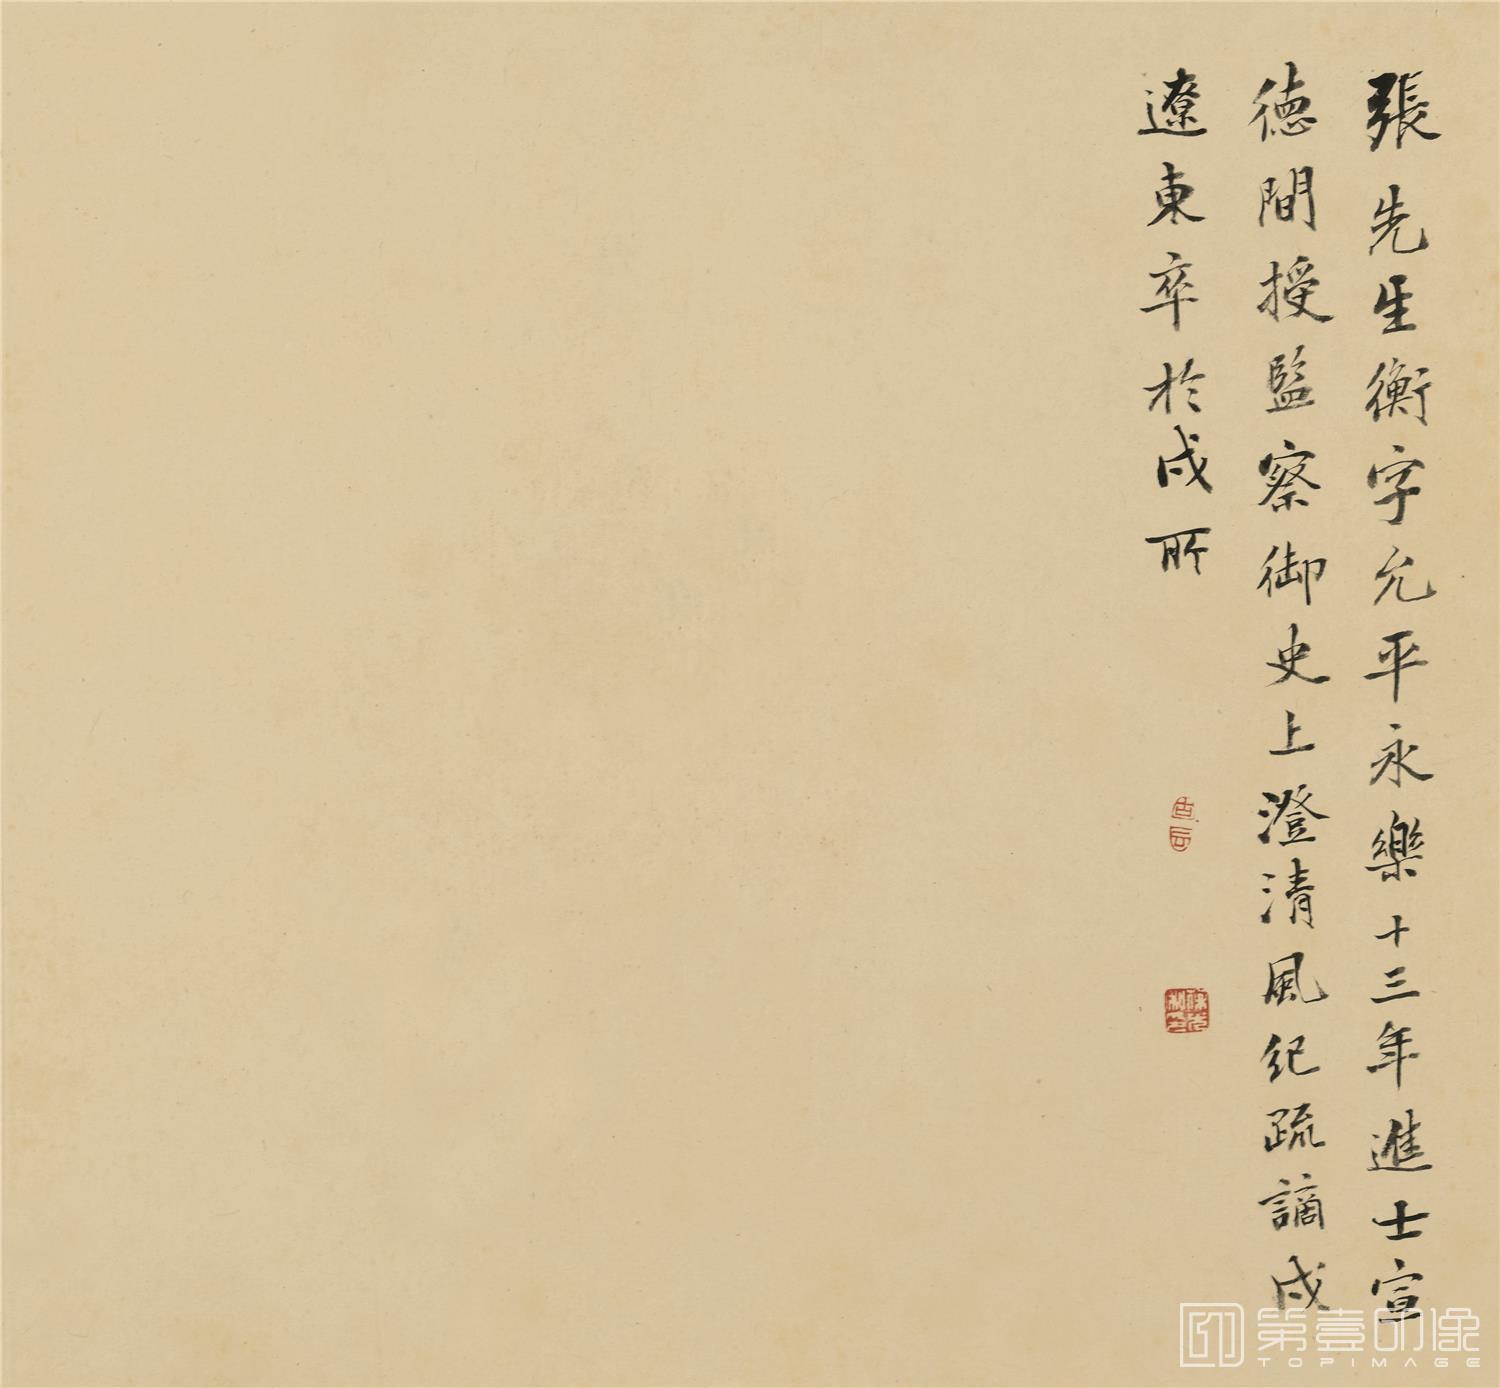 張先生衡字允平永樂十三年進士宣
德間授監察御史上澄清風紀疏謫戍
遼東卒於戍所
第壹印像
TOPIMAGE